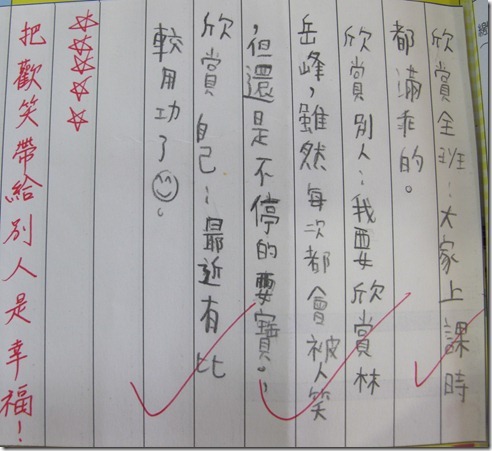 欣賞全班：大家上課時
都滿乖的。
欣賞別人：我要欣賞林
岳峰，雖然每次都會被人笑
，但還是不停的耍寶。
欣賞自己：最近有比
較用功了。
☆☆☆☆☆
把歡笑帶給別人是幸福！